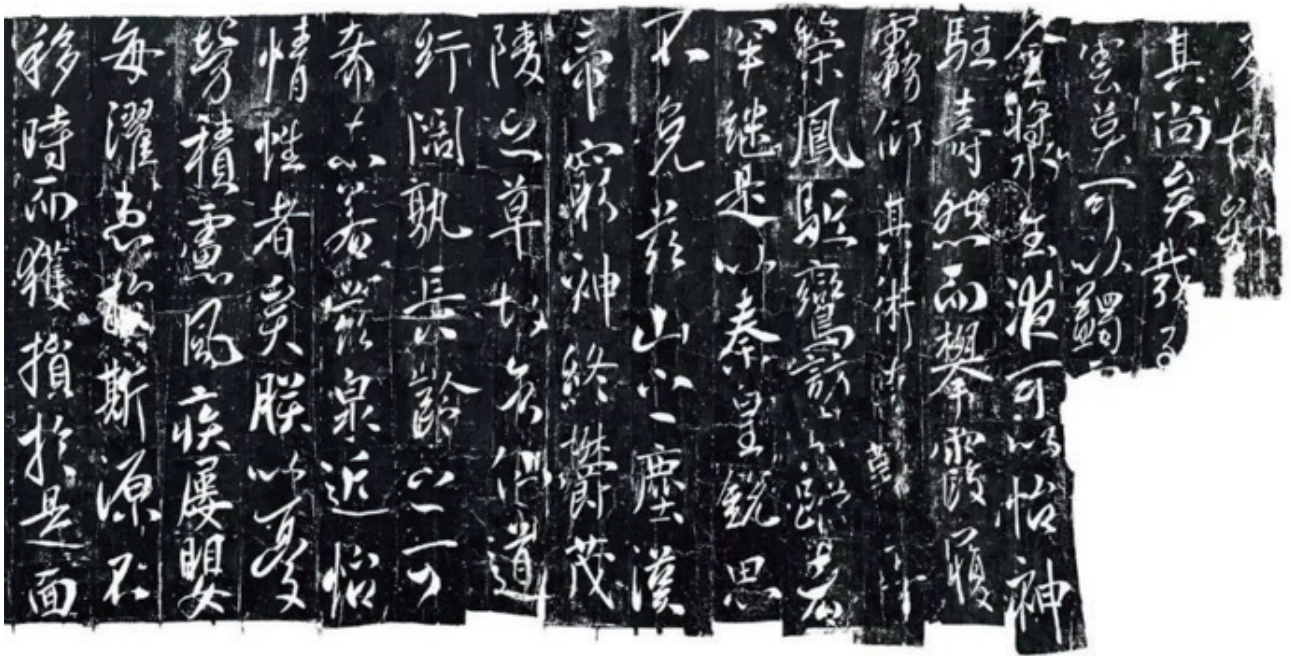 其尚矣哉
莫可以蠲
金漿玉液可以怡神
駐壽然而攀霞履
霧衍其術
策鳳驅鸞訪蹤者
罕繼是以秦皇銳思
不免茲山之塵漢
帝窮神終鬱茂
陵之草故知仙道
紆闊孰長齡之可
希不若茲泉近怡
情性者矣朕以憂
勞積慮風疾屢嬰
每濯患於斯源不
移時而獲損於是面